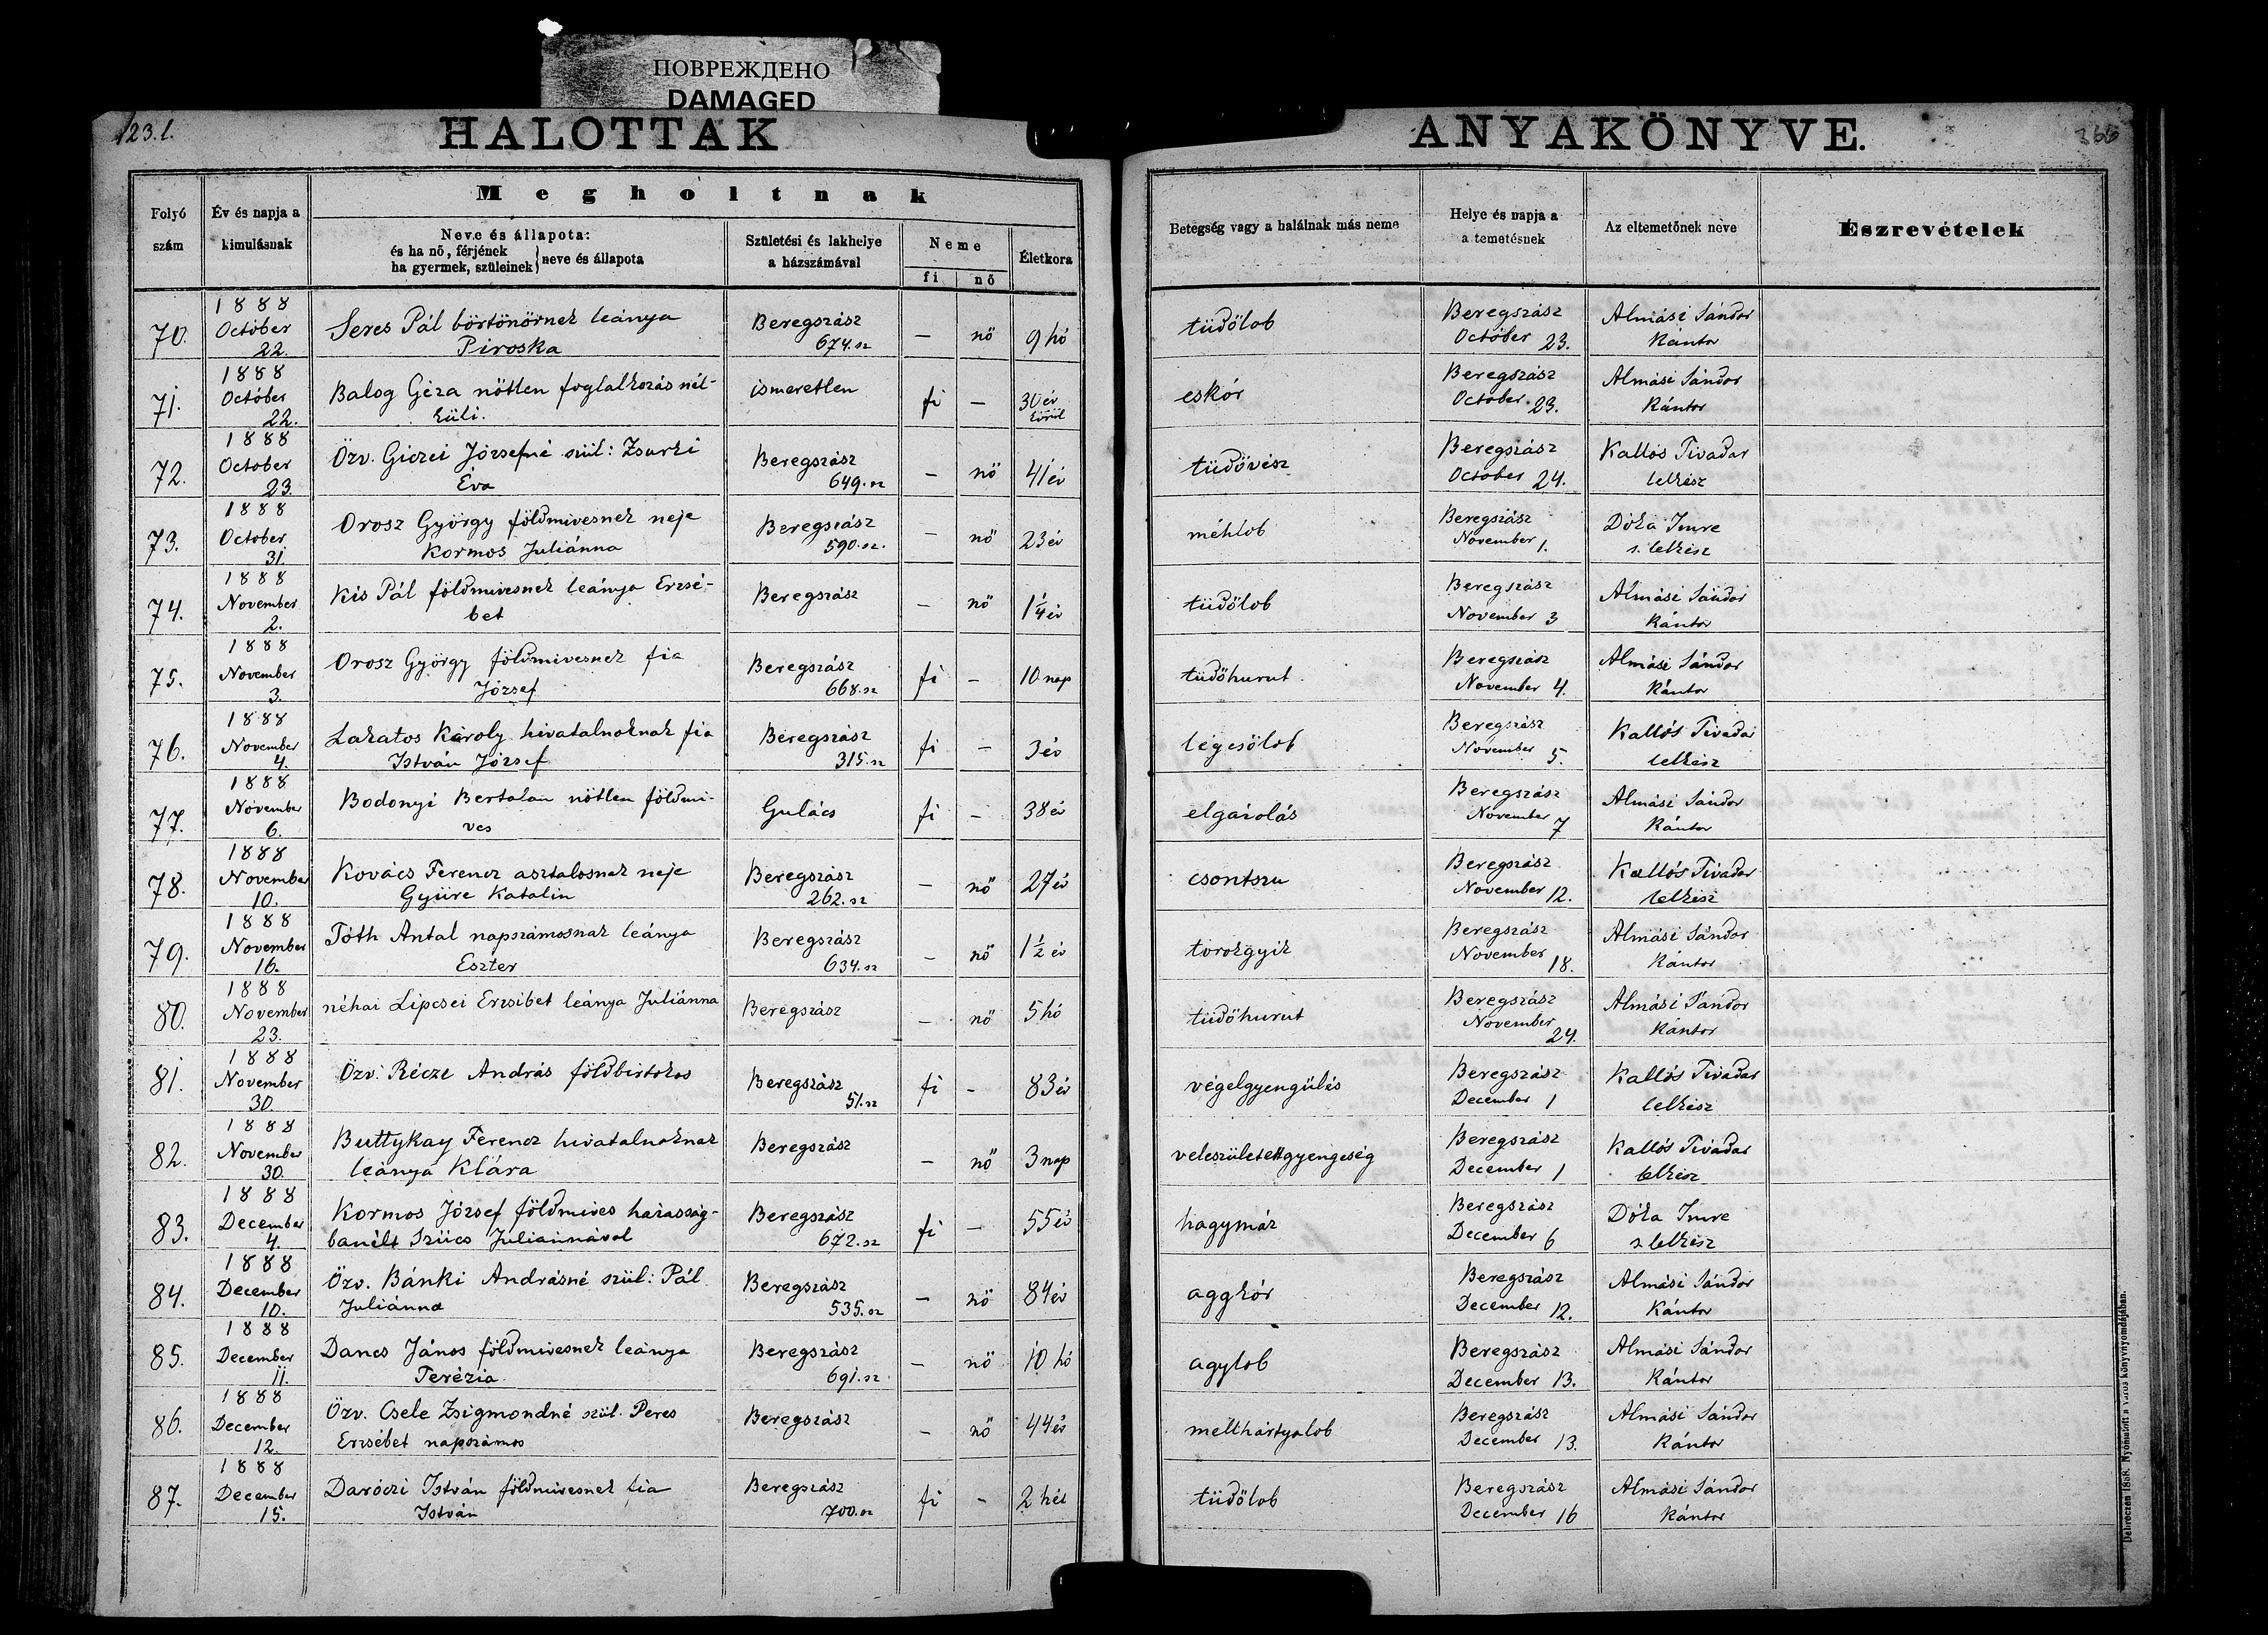 ПОВРЕЖДЕНО
DAMAGED
123.l.
HALOTTAK
ANYAKÖNYVE.
366
Folyó szám
Év és napja a kimulásnak
Megholtnak
Neve és állapota:
és ha nő, férjének
ha gyermek, szüleinek } neve és állapota
Születési és lakhelye
a házszámával
Neme
fi nő
Életkora
Betegség vagy a halálnak más neme
Helye és napja a
a temetésnek
Az eltemetőnek neve
Észrevételek
70. 1888 October 22. Seres Pál börtönörnek leánya Piroska Beregszász 674. sz – nő 9 hó tüdőlob Beregszász October 23. Almási Sándor Kántor
71. 1888 October 22. Balog Géza nötlen foglalkozás nél-küli. ismeretlen fi – 30 év körül eskór Beregszász October 23. Almási Sándor Kántor
72. 1888 October 23. Özv. Giczei Józsefné szül: Zsurki Éva Beregszász 649. sz – nő 41 év tüdővész Beregszász October 24. Kallós Tivadar lelkész
73. 1888 October 31. Orosz György földmivesnek neje Kormos Juliánna Beregszász 590. sz. – nő 23 év méhlob Beregszász November 1. Dóka Imre s. lelkész
74. 1888 November 2. Kis Pál földmivesnek leánya Erzsé-bet Beregszász – nő 1¼ év tüdőlob Beregszász November 3 Almási Sándor Kántor
75. 1888 November 3. Orosz György földmivesnek fia József Beregszász 668. sz fi – 10 nap tüdőhurut Beregszász November 4. Almási Sándor Kántor
76. 1888 November 4. Lakatos Károly hivatalnoknak fia István József Beregszász 315. sz fi – 3 év légcsőlob Beregszász November 5. Kallós Tivadar lelkész
77. 1888 November 6. Bodonyi Bertalan nötlen földmi-ves Gulács fi – 38 év elgázolás Beregszász November 7 Almási Sándor Kántor
78. 1888 November 10. Kovács Ferencz asztalosnak neje Gyüre Katalin Beregszász 262. sz – nő 27 év csontszu Beregszász November 12. Kallós Tivadar lelkész
79. 1888 November 16. Tóth Antal napszámosnak leánya Eszter Beregszász 634. sz – nő 1½ év torokgyík Beregszász November 18. Almási Sándor Kántor
80. 1888 November 23. néhai Lipcsei Erzsébet leánya Juliánna Beregszász – nő 5 hó tüdőhurut Beregszász November 24. Almási Sándor Kántor
81. 1888 November 30. Özv. Récze András földbirtokos Beregszász 51. sz fi – 83 év végelgyengülés Beregszász December 1 Kallós Tivadar lelkész
82. 1888 November 30. Buttykay Ferencz hivatalnoknak leánya Klára Beregszász – nő 3 nap veleszületettgyengeség Beregszász December 1 Kallós Tivadar lelkész
83. 1888 December 4. Kormos József földmives házasság-banélt Szücs Juliannával Beregszász 672. sz fi – 55 év hagymáz Beregszász December 6 Dóka Imre s. lelkész
84. 1888 December 10. Özv. Bánki Andrásné szül: Pál Juliánna Beregszász 535. sz – nő 84 év aggkór Beregszász December 12. Almási Sándor Kántor
85. 1888 December 11. Dancs János földmivesnek leánya Terézia Beregszász 691. sz – nő 10 hó agylob Beregszász December 13. Almási Sándor Kántor
86. 1888 December 12. Özv. Csele Zsigmondné szül. Peres Erzsébet napszámos Beregszász – nő 44 év mellhártyalob Beregszász December 13. Almási Sándor Kántor
87. 1888 December 15. Daróczi István földmivesnek fia István Beregszász 700. sz fi – 2 hét tüdőlob Beregszász December 16 Almási Sándor Kántor
Debreczen 1868. Nyomatott a város könyvnyomdájában.